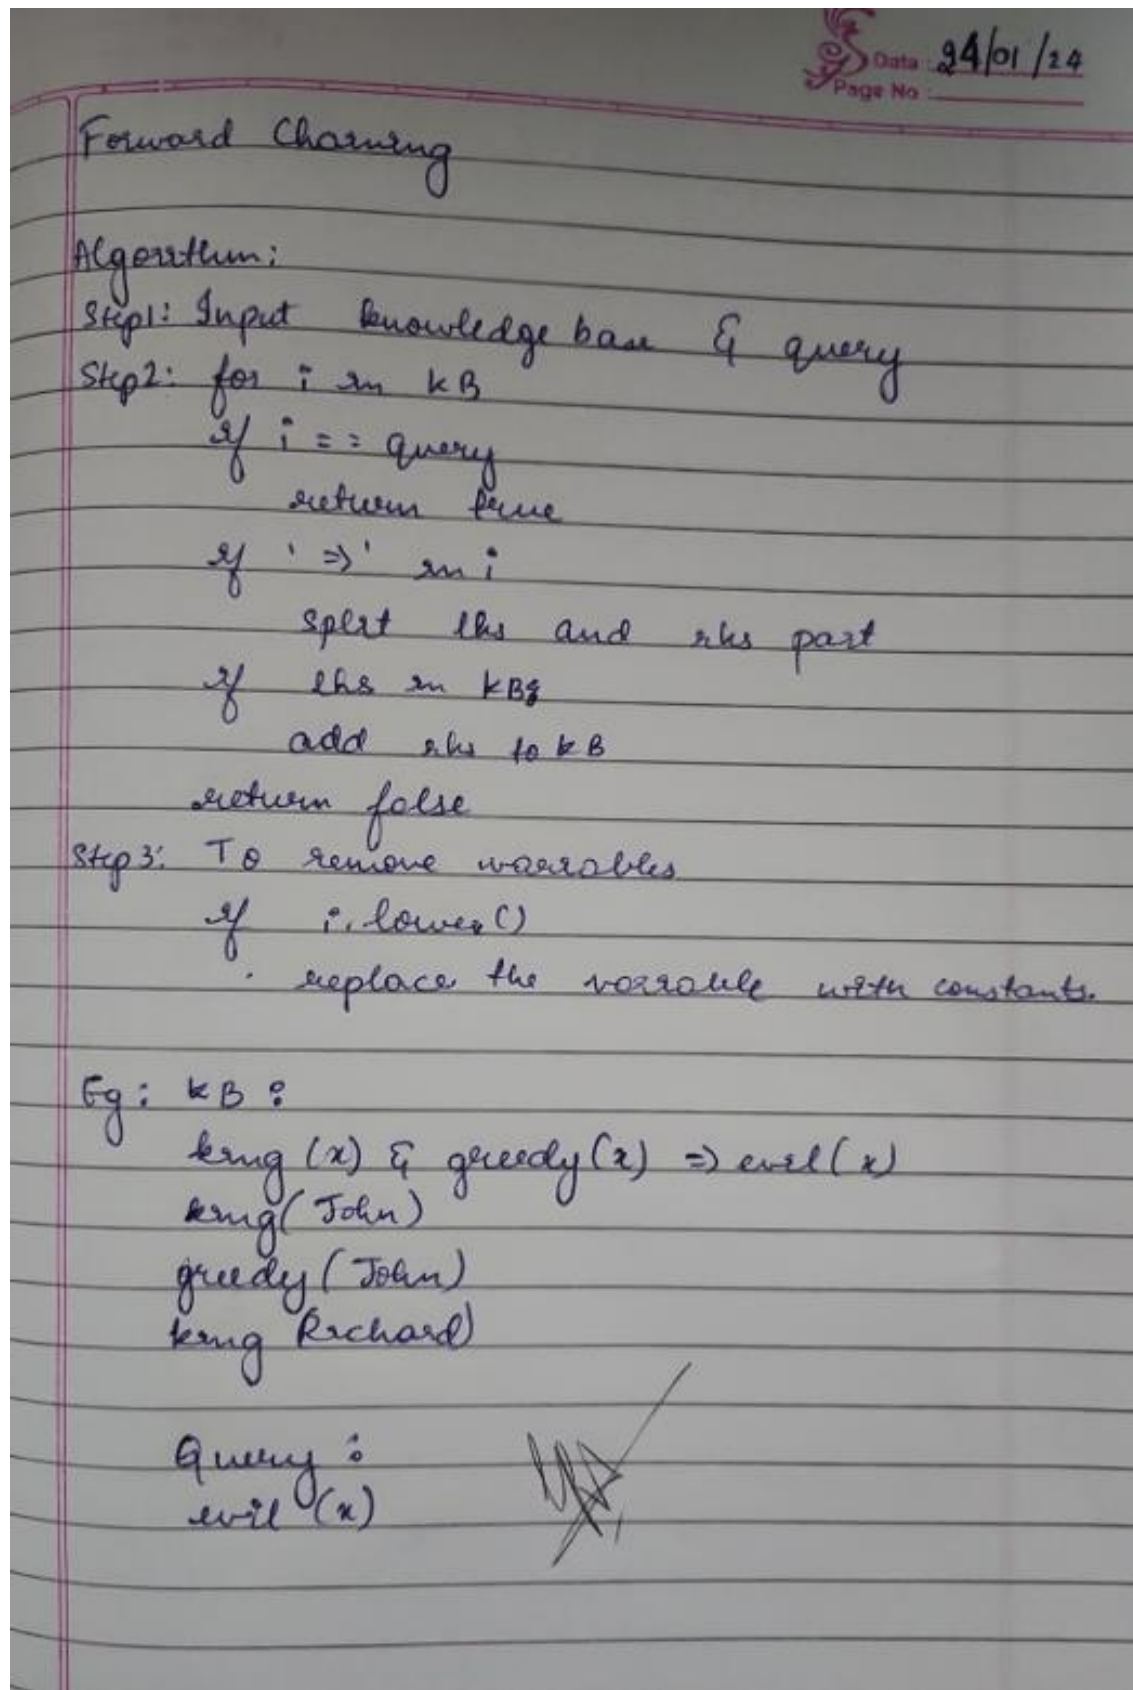 Data : 24/01/24
Page No :
Forward Chaining
Algorithm:
Step1: Input knowledge base & query
Step2: for i in KB
if i == query
return true
if '=>' in i
split lhs and rhs part
if lhs in KB:
add rhs to KB
return false
Step 3: To remove variables
if i.lower()
replace the variable with constants.
Eg: KB:
king (x) & greedy(x) => evil(x)
king(John)
greedy(John)
king Richard)
Query:
evil (x)